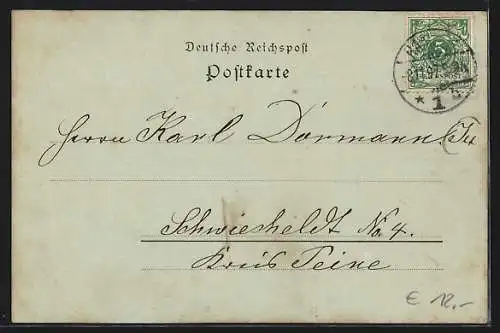 Deutsche Reichspost
Postkarte
5
1
Herrn Karl Dormann
Schwiecheldt No. 4.
Kreis Peine
€ 12,-